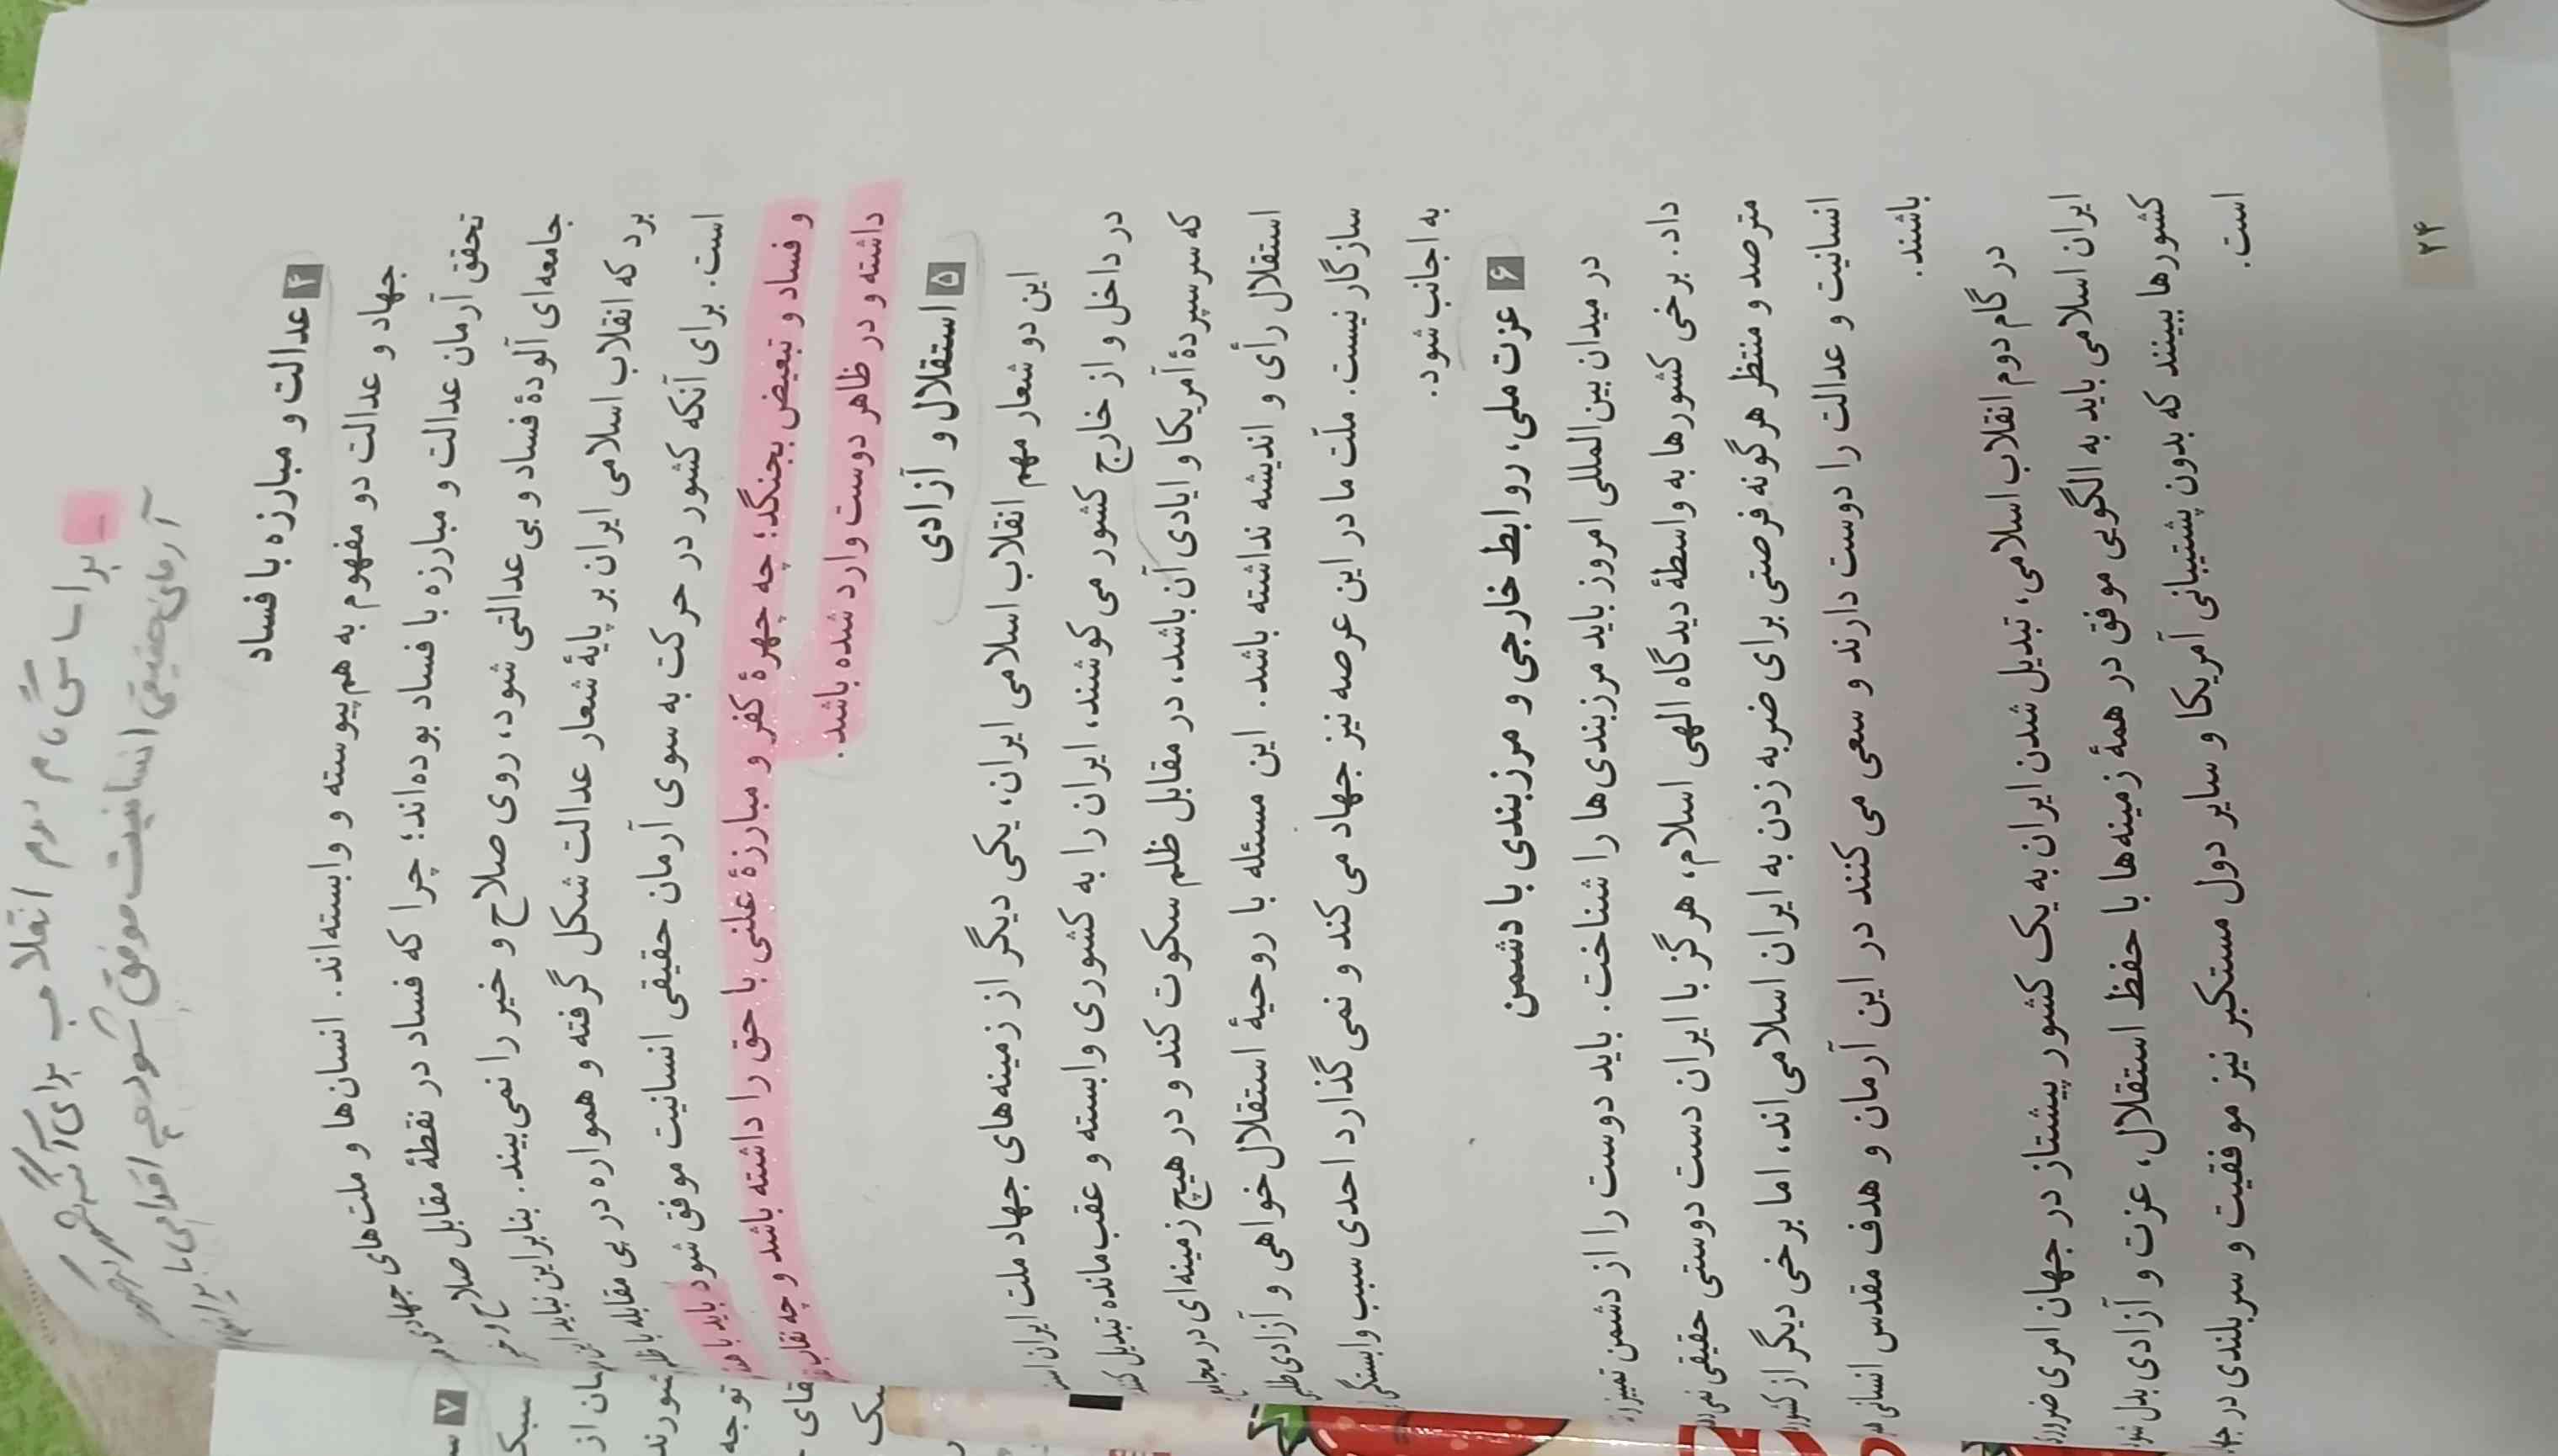 براساس گام دوم انقلاب برای آنکه کشور در
آرمان حقیقی انسانیت موفق شود چه اقدامی باید انجام
۴ عدالت و مبارزه با فساد
جهاد و عدالت دو مفهوم به هم پیوسته و وابسته‌اند. انسان‌ها و ملت‌های جهادی
تحقق آرمان عدالت و مبارزه با فساد بوده‌اند؛ چرا که فساد در نقطهٔ مقابل صلاح و
جامعه‌ای آلودهٔ فساد و بی‌عدالتی شود، روی صلاح و خیر را نمی‌بیند. بنابراین نباید
برد که انقلاب اسلامی ایران بر پایهٔ شعار عدالت شکل گرفته و همواره در پی مقابله با ظلم
است. برای آنکه کشور در حرکت به سوی آرمان حقیقی انسانیت موفق شود باید با
و فساد و تبعیض بجنگد؛ چه چهرهٔ کفر و مبارزهٔ علنی با حق را داشته باشد و چه نقاب
داشته و در ظاهر دوست وارد شده باشد.
۵ استقلال و آزادی
این دو شعار مهم انقلاب اسلامی ایران، یکی دیگر از زمینه‌های جهاد ملت ایران
در داخل و از خارج کشور می‌کوشند، ایران را به کشوری وابسته و عقب‌مانده تبدیل کنند
که سرسپردهٔ آمریکا و ایادی آن باشد، در مقابل ظلم سکوت کند و در هیچ زمینه‌ای در
استقلال رأی و اندیشه نداشته باشد. این مسئله با روحیهٔ استقلال‌خواهی و آزادی
سازگار نیست. ملّت ما در این عرصه نیز جهاد می‌کند و نمی‌گذارد احدی سبب وابستگی
به اجانب شود.
۶ عزت ملی، روابط خارجی و مرزبندی با دشمن
در میدان بین‌المللی امروز باید مرزبندی‌ها را شناخت. باید دوست را از دشمن تمییز
داد. برخی کشورها به واسطهٔ دیدگاه الهی اسلام، هرگز با ایران دست دوستی حقیقی
مترصد و منتظر هرگونه فرصتی برای ضربه زدن به ایران اسلامی‌اند، اما برخی دیگر از
انسانیت و عدالت را دوست دارند و سعی می‌کنند در این آرمان و هدف مقدس انسانی
باشند.
در گام دوم انقلاب اسلامی، تبدیل شدن ایران به یک کشور پیشتاز در جهان امری ضروری
ایران اسلامی باید به الگویی موفق در همهٔ زمینه‌ها با حفظ استقلال، عزت و آزادی بدل شود
کشورها ببینند که بدون پشتیبانی آمریکا و سایر دول مستکبر نیز موفقیت و سربلندی در
است.
۲۴
۷
سبک
توجه